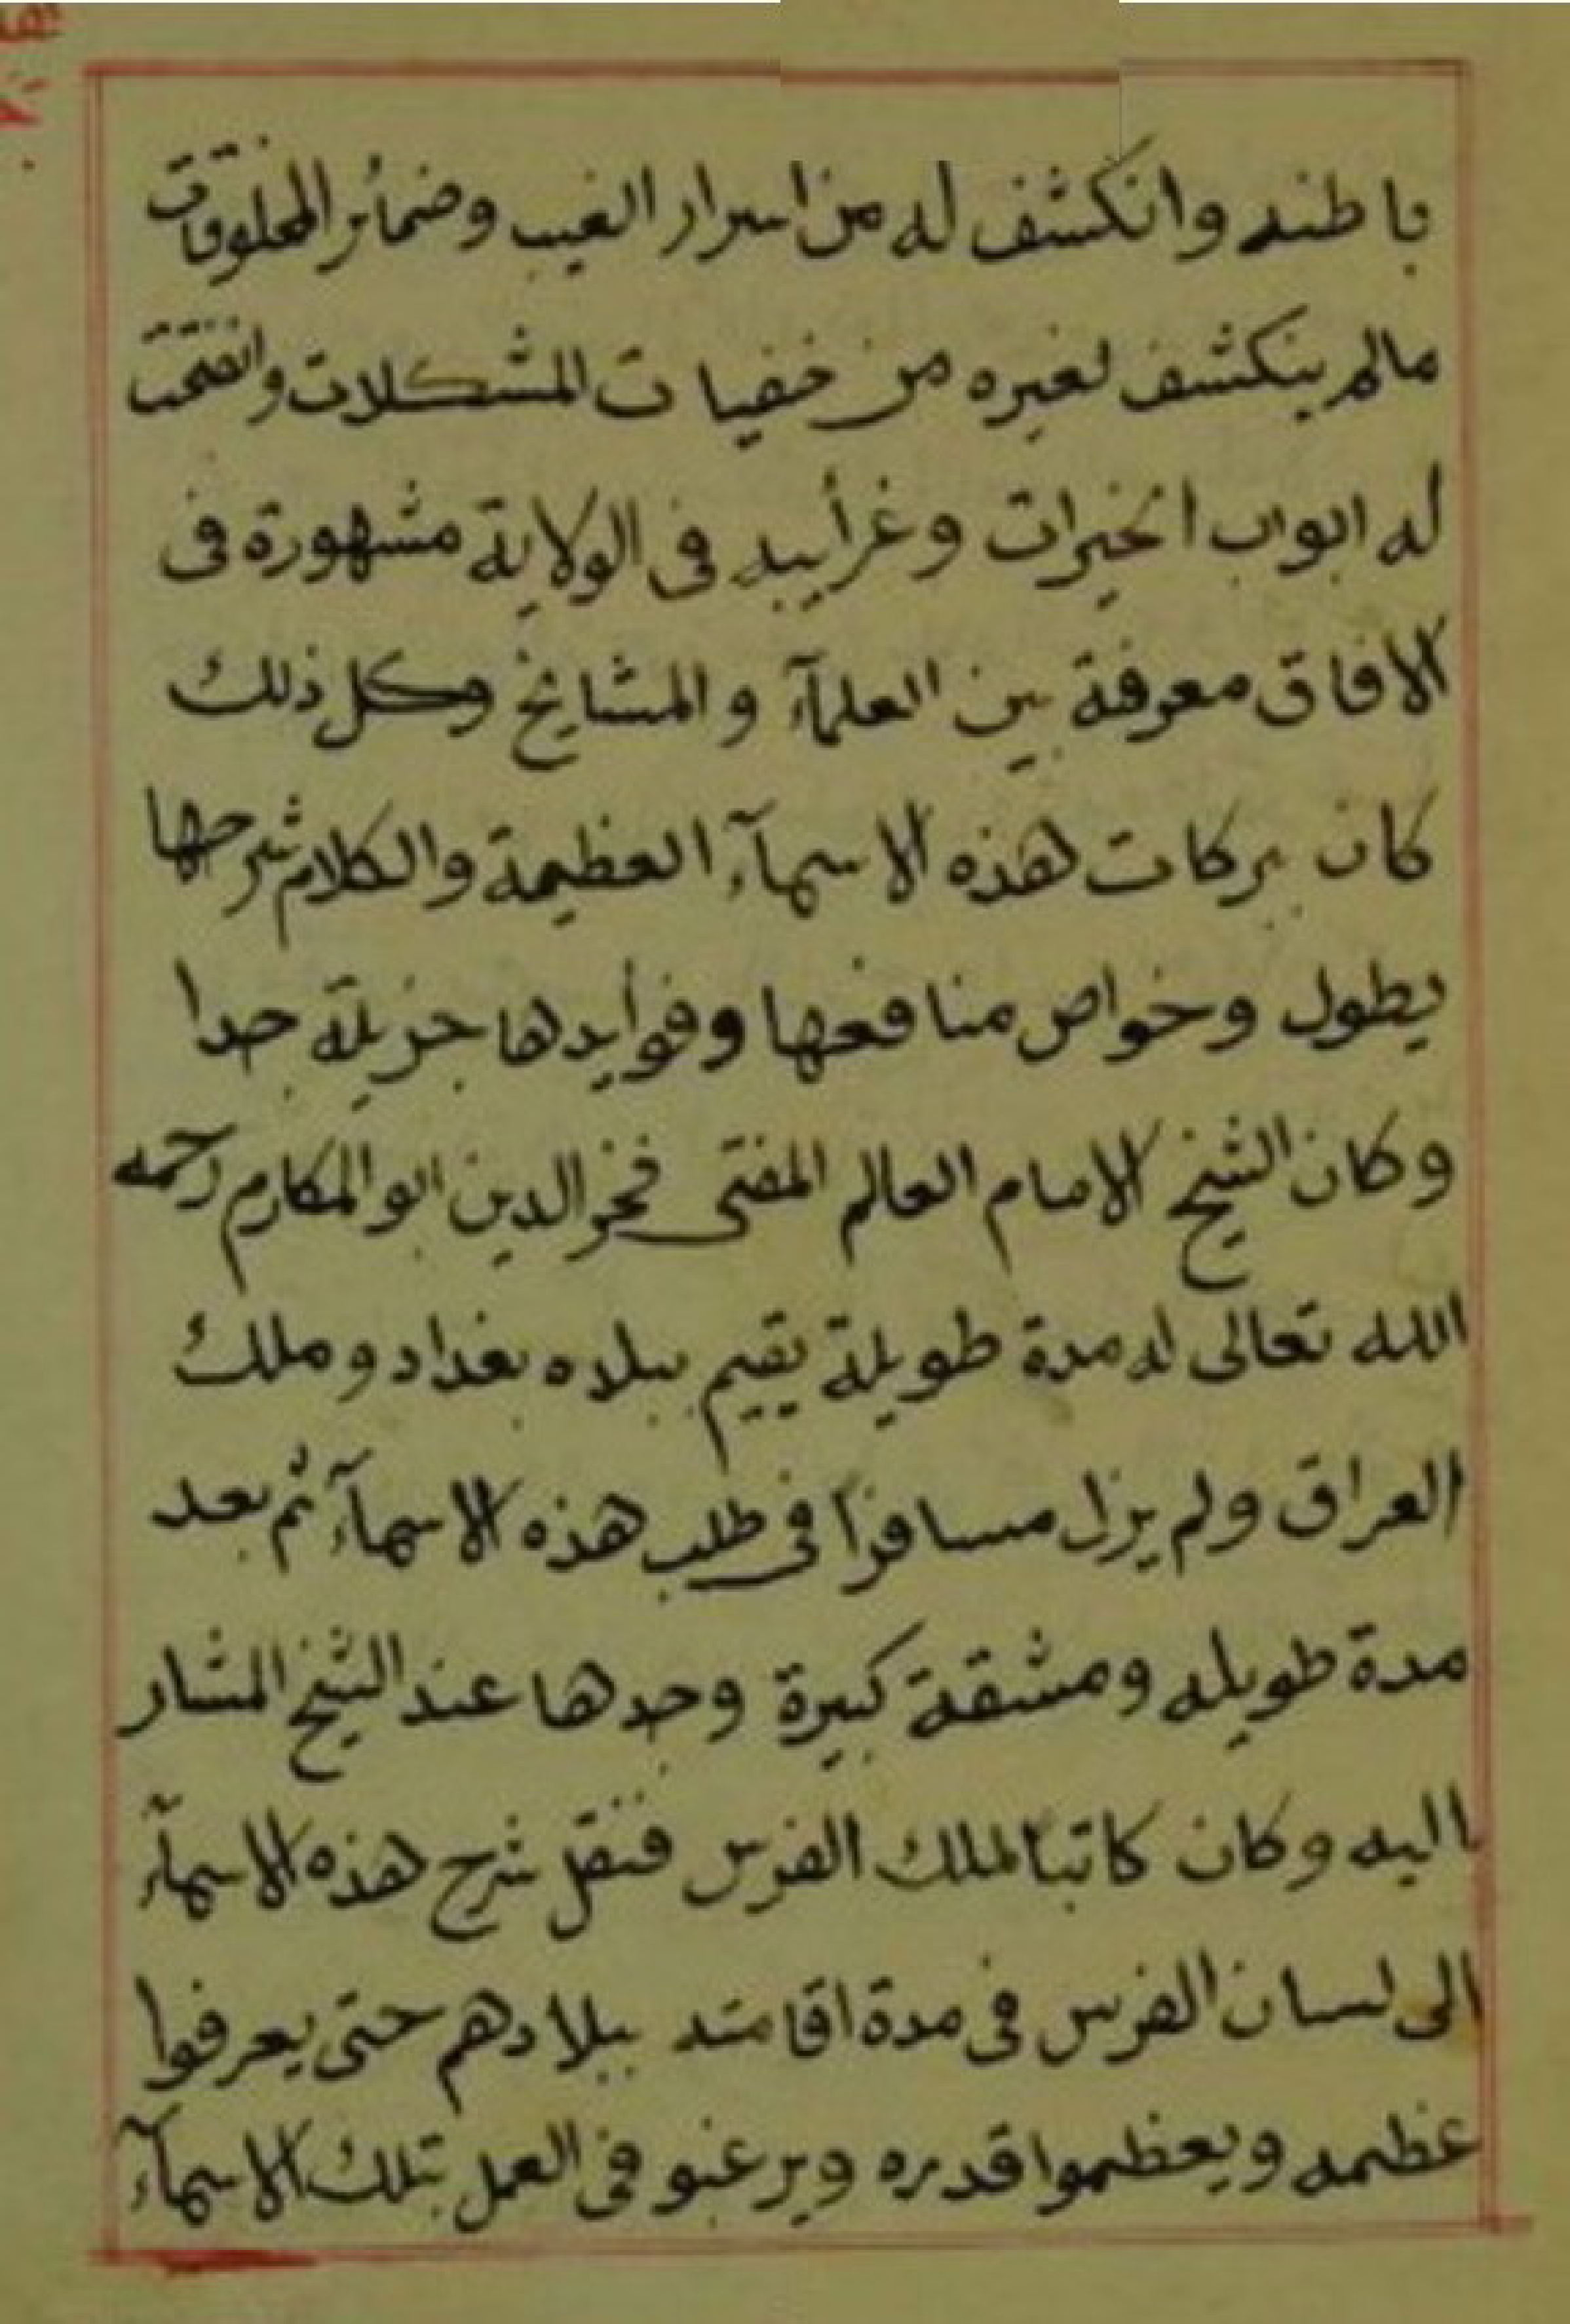 باطنه وانكشف له من اسرار الغيب وضمائر المخلوقات
مالم ينكشف لغيره من خفيات المشكلات وانفتحت
له ابواب الخيرات وغرأيبه فى الولاية مشهورة فى
الافاق معروفة بين العلمآء والمشايخ وكل ذلك
كان بركات هذه الاسمآء العظيمة والكلام شرحها
يطول وخواص منافعها وفوأيدها جزيلة جدا
وكان الشيخ الامام العالم المفتى فخر الدين ابو المكارم رحمه
الله تعالى له مدة طويلة يقيم ببلاه بغداد وملك
العراق ولم يزل مسافرا فى طلب هذه الاسمآء ثم بعد
مدة طويله ومشقة كبيرة وجدها عند الشيخ المشار
اليه وكان كاتبا لملك الفرس فنقل شرح هذه الاسمآء
الى لسان الفرس فى مدة اقامته ببلادهم حتى يعرفوا
عظمه ويعظموا قدره ويرغبو فى العمل بتلك الاسمآء